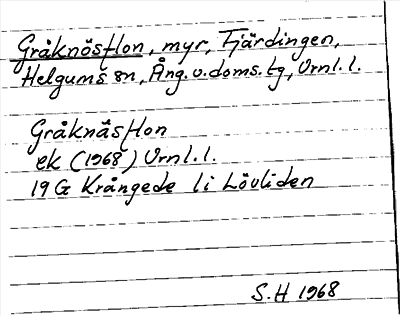 Gråknösflon, myr, Fjärdingen,
Helgums sn, Ång. v. doms. tg, Vrnl. l.
Gråknäsflon
ek (1968) Vrnl. l.
19 G Krångede li Lövliden
S.H 1968